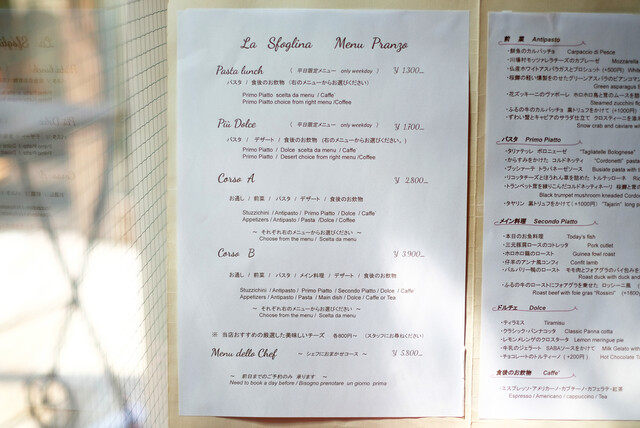 La Sfoglina Menu Pranzo
Pasta lunch ( 平日限定メニュー only weekday ) ¥ 1.300_
パスタ / 食後のお飲物 (右のメニューからお選びください)
Primo Piatto scelta da menu / Caffe'
Primo Piatto choice from right menu /Coffee
Più Dolce ( 平日限定メニュー only weekday ) ¥ 1.700_
パスタ / デザート / 食後のお飲物 (右のメニューからお選びください。)
Primo Piatto / Dolce scelta da menu / Caffe'
Primo Piatto / Desert choice from right menu /Coffee
Corso A ¥ 2.800_
お通し / 前菜 / パスタ / デザート / 食後のお飲物
Stuzzichini / Antipasto / Primo Piatto / Dolce / Caffe'
Appetizers / Antipasto / Pasta / Dolce / Coffee
～ それぞれ右のメニューからお選びください ～
Choose from the menu / Scelta da menu
Corso B ¥ 3.900_
お通し / 前菜 / パスタ / メイン料理 / デザート / 食後のお飲物
Stuzzichini / Antipasto / Primo Piatto / Secondo Piatto / Dolce / Caffe'
Appetizers / Antipasto / Pasta / Main dish / Dolce / Caffe or Tea
～ それぞれ右のメニューからお選びください ～
Choose from the menu / Scelta da menu
※ 当店おすすめの厳選した美味しいチーズ 各600円～ (スタッフにお尋ねください)
Menu dello Chef ～ シェフにおまかせコース ～ ¥ 5.800_
～ 前日までのご予約のみ 承ります ～
Need to book a day before / Bisogno prenotare un giorno prima
前 菜 Antipasto
・鮮魚のカルパッチョ Carpaccio di Pesce
・川場村モッツァレラチーズのカプレーゼ Mozzarella
・仏産ホワイトアスパラガスとプロシュット (+500円) White
・桜鱒の軽い燻製をのせたグリーンアスパラのビアンコマンジャーレ
Green asparagus B
・花ズッキーニのヴァポーレ ホロホロ鳥と茸のムースを詰め
Steamed zucchini
・ふるの牛のカルパッチョ 黒トリュフをかけて (+1000円)
・ずわい蟹とキャビアのサラダ仕立て クロスティーニを添え
Snow crab and caviar
パスタ Primo Piatto
・タリァテッレ ボロニェーゼ "Tagliatelle Bolognese"
・からすみをかけた コルドネッティ "Cordonetti" pasta
・ブッシアーテ トラパネーゼソース Busiate pasta with
・リコッタチーズとほうれん草を詰めた トルテッローネ
・トランペット茸を練りこんだコルドネッティキーリ
Black trumpet mushroom kneaded Cord
・タヤリン 黒トリュフをかけて (+1000円) "Tajarin" long pasta
メイン料理 Secondo Piatto
・本日のお魚料理 Today's fish
・三元豚肩ロースのコトレッタ Pork cutlet
・ホロホロ鶏のロースト Guinea fowl roast
・仔羊のアンナ風コンフィ Confit lamb
・バルバリー鴨のロースト モモ肉とフォアグラのパイ包みを
Roast duck with duck and
・ふるの牛のローストにフォアグラを乗せた ロッシーニ風
Roast beef with foie gras "Rossini" (+1800
ドルチェ Dolce
・ティラミス Tiramisu
・クラシック・パンナコッタ Classic Panna cotta
・レモンメレンゲのクロスタータ Lemon meringue pie
・牛乳のジェラート SABAソースをかけて Milk Gelato with
・チョコレートのトルティーノ (+200円) Hot Chocolate To
食後のお飲物 Caffe'
・エスプレッソ・アメリカーノ・カプチーノ・カフェラテ・紅茶
Espresso / Americano / cappuccino / Tea